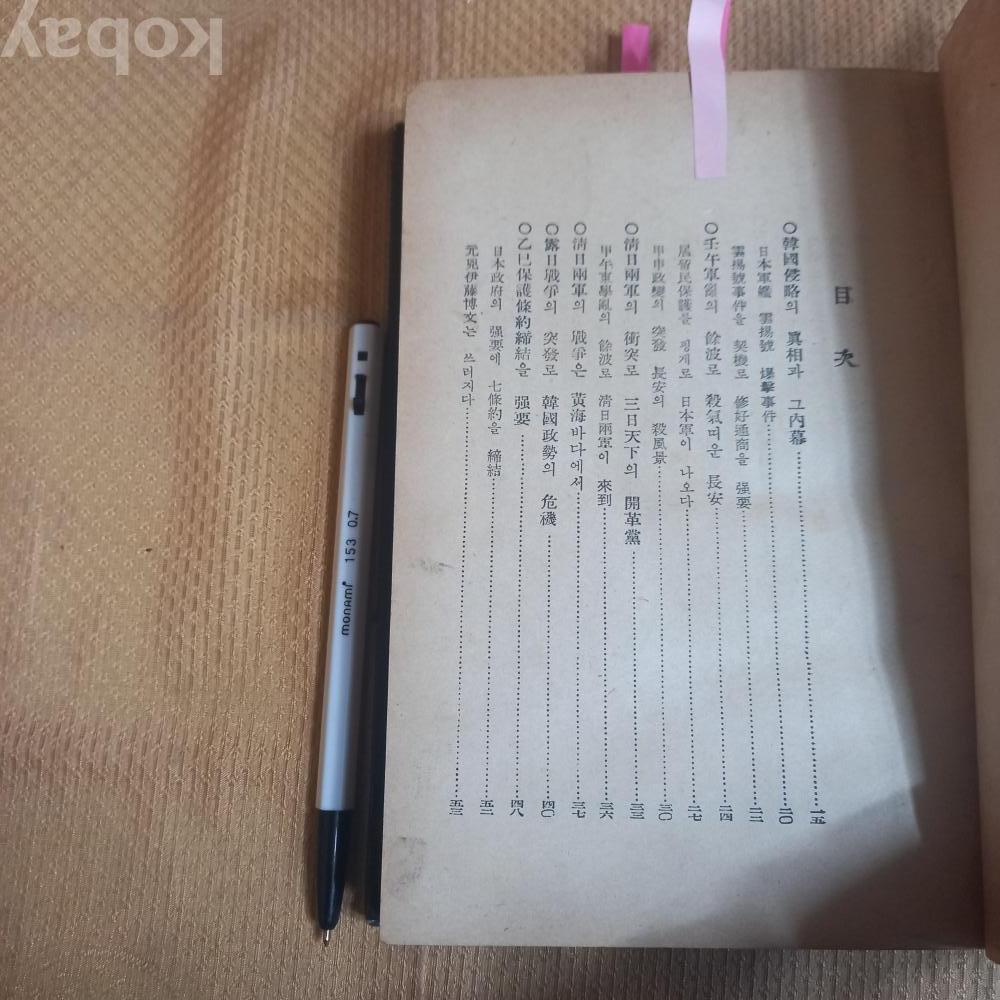 目次
○韓國侵略의 眞相과 그內幕 一五
日本軍艦 雲揚號 爆擊事件 二〇
雲揚號事件을 契機로 修好通商을 强要 二二
○壬午軍亂의 餘波로 殺氣띠운 長安 二四
居留民保護를 핑게로 日本軍이 나오다 二七
甲申政變의 突發 長安의 殺風景 三〇
○淸日兩軍의 衝突로 三日天下의 開革黨 三三
甲午東學亂의 餘波로 淸日兩軍이 來到 三六
○淸日兩軍의 戰爭은 黃海바다에서 三七
○露日戰爭의 突發로 韓國政勢의 危機 四〇
○乙巳保護條約締結을 强要 四八
日本政府의 强要에 七條約을 締結 五二
元兇伊藤博文는 쓰러지다 五三
monami 153 0.7
kobay